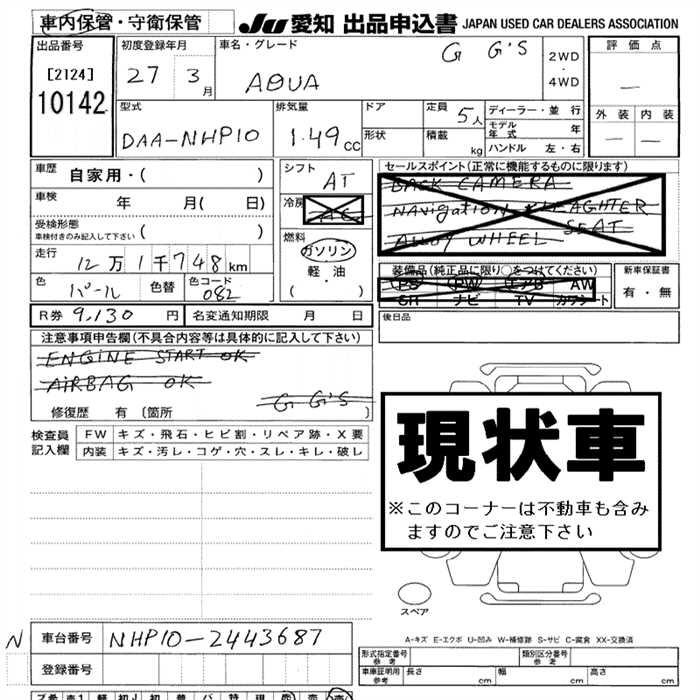 車内保管・守衛保管 JU 愛知 出品申込書 JAPAN USED CAR DEALERS ASSOCIATION
出品番号 初度登録年月 車名・グレード 評価点
[2124] 27 3月 AQUA G G'S 2WD・4WD —
10142 外装 内装
— —
型式 排気量 ドア 定員 5人 ディーラー・並行
DAA-NHP10 1.49cc 形状 積載 kg モデル年式 年
ハンドル 左・右
車歴 自家用・( ) シフト AT セールスポイント(正常に機能するものに限ります)
車検 年 月( 日) 冷房 AC BACK CAMERA
受検形態 ( ) NAVIGATION
車検付きのみ記入して下さい 燃料 ALLOY WHEEL SEAT
走行 12万1千748km ガソリン
軽・油
・( )
装備品(純正品に限り○をつけてください) 新車保証書
PS PW エアB AW 有・無
SR ナビ TV カワシート
色 パール 色替 色コード 082
R券 9,130 円 名変通知期限 月 日 後日品
注意事項申告欄(不具合内容等は具体的に記入して下さい)
ENGINE START OK
AIRBAG OK
G G'S
修復歴 有 〔箇所 〕
検査員記入欄 FW キズ・飛石・ヒビ割・リペア跡・X要
内装 キズ・汚レ・コゲ・穴・スレ・キレ・破レ
現状車
※このコーナーは不動車も含み
ますのでご注意下さい
スペア
A-キズ E-エクボ U-凹み W-補修跡 S-サビ C-腐食 XX-交換済
N 車台番号 NHP10-2443687
登録番号
形式指定番号 参考 類別区分番号 参考
車庫証明用 参考 長さ cm 幅 cm 高さ cm